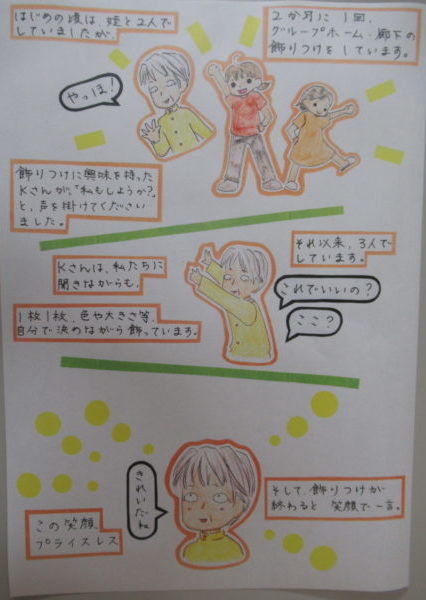 ２か月に１回、
グループホーム・廊下の
飾りつけをしています。
はじめの頃は、姪と２人で
していましたが、
やっほ！
飾りつけに興味を持った
Kさんが、「私もしようか？」
と、声を掛けてください
ました。
それ以来、３人で
しています。
Kさんは、私たちに
聞きながらも、
これでいいの？
ここ？
１枚１枚、色や大きさ等、
自分で決めながら飾っています。
そして、飾りつけが
終わると 笑顔で一言。
きれいだね
この笑顔
プライスレス